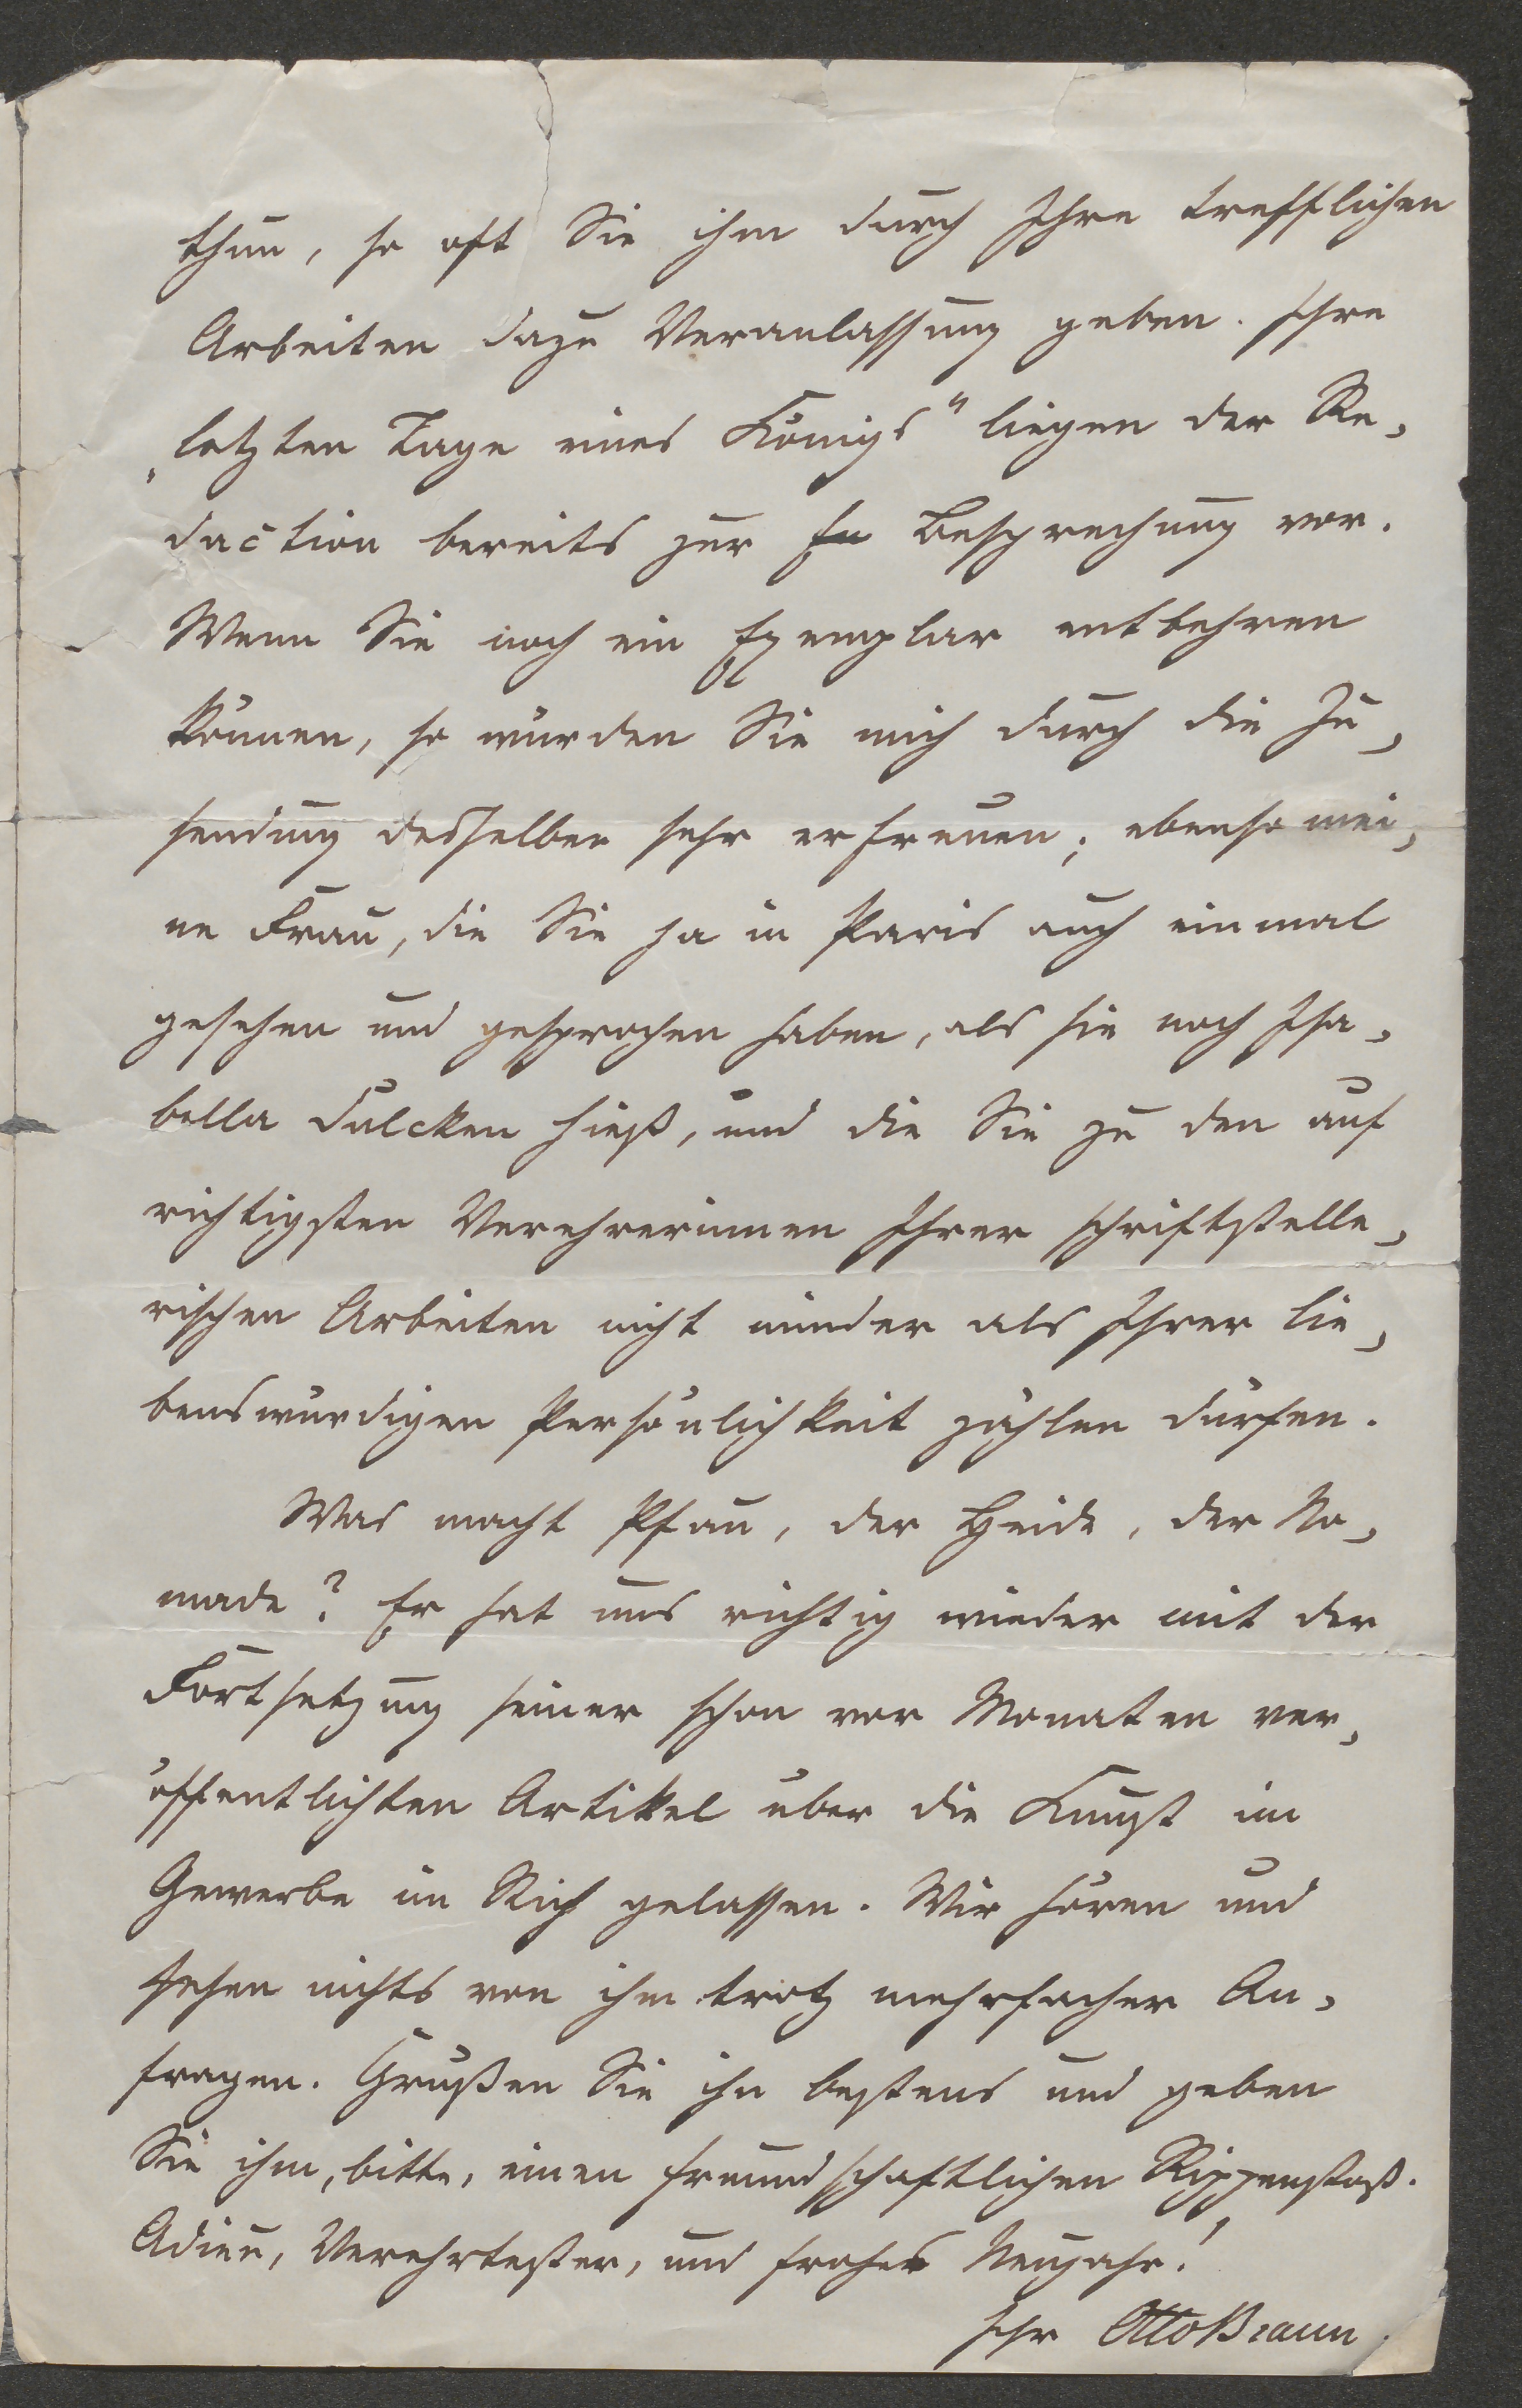 thun, so oft Sie ihm durch Ihre trefflichen
Arbeiten dazu Veranlassung geben. Ihre
„letzten Tage eines Königs“ liegen der Re-
daction bereits zur Besprechung vor.
Wenn Sie noch ein Exemplar entbehren
können, so würden Sie mich durch die Zu-
sendung desselben sehr erfreuen; ebenso mei-
ne Frau, die Sie ja in Paris auch einmal
gesehen und gesprochen haben, als sie noch Isa-
bella Dulcken hieß, und die Sie zu den auf
richtigsten Verehrerinnen Ihrer schriftstelle-
rischen Arbeiten nicht minder als Ihrer lie-
benswürdigen Persönlichkeit zählen dürfen.
Was macht Pfau, der Heide, der No-
made? Er hat uns richtig wieder mit der
Fortsetzung seiner schon vor Monaten ver-
öffentlichten Artikel über die Kunst im
Gewerbe im Stich gelassen. Wir hören und
sehen nichts von ihm trotz mehrfacher An-
fragen. Grüßen Sie ihn bestens und geben
Sie ihm, bitte, einen freundschaftlichen Rippenstoß.
Adieu, Verehrtester, und frohes Neujahr!
Ihr Otto Braun